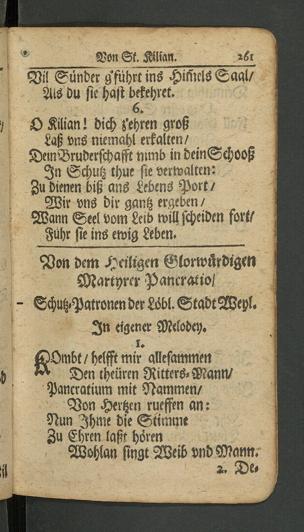 Von St. Kilian. 261
Vil Sünder g'führt ins Him̅els Saal/
Als du sie hast bekehret.
6.
O Kilian! dich z'ehren groß
Laß uns niemahl erkalten/
Dein Bruderschafft nimb in dein Schooß
In Schutz thue sie verwalten:
Zu dienen biß ans Lebens Port/
Wir uns dir gantz ergeben/
Wann Seel vom Leib will scheiden fort/
Führ sie ins ewig Leben.
Von dem Heiligen Glorwürdigen
Martyrer Pancratio/
Schutz-Patronen der Löbl. Stadt Weyl.
In eigener Melodey.
1.
KOmbt/ helfft mir allesammen
Den theüren Ritters-Mann/
Pancratium mit Nammen/
Von Hertzen rueffen an:
Nun Ihme die Stimme
Zu Ehren laßt hören
Wohlan singt Weib vnd Mann.
2. De-